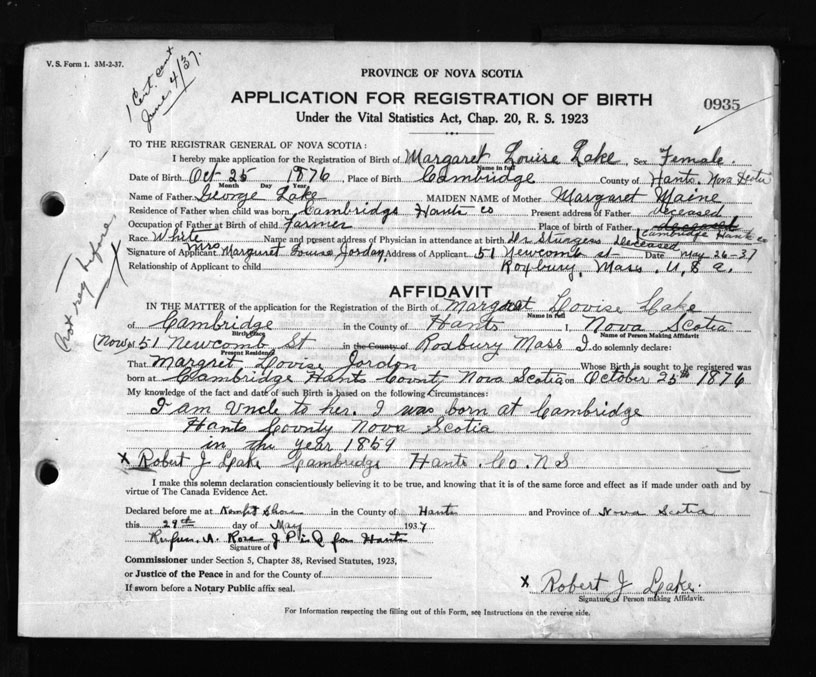 V. S. Form 1. 3M-2-37.
1 Cert. sent
June 4/37.
PROVINCE OF NOVA SCOTIA
APPLICATION FOR REGISTRATION OF BIRTH
0935
Under the Vital Statistics Act, Chap. 20, R. S. 1923
TO THE REGISTRAR GENERAL OF NOVA SCOTIA:
I hereby make application for the Registration of Birth of Margaret Louise Lake, Sex Female.
Name in full
Date of Birth Oct 25 1876, Place of Birth Cambridge County of Hants, Nova Scotia
Month Day Year
Name of Father George Lake MAIDEN NAME of Mother Margaret Maine
Residence of Father when child was born, Cambridge Hants Co Present address of Father deceased
Occupation of Father at Birth of child Farmer Place of birth of Father deceased Cambridge Hants Co
Race White Name and present address of Physician in attendance at birth Dr Sturgess deceased
Signature of Applicant Mrs Margaret Louise Jordan Address of Applicant 51 Newcomb st Date May 26-37
Relationship of Applicant to child Roxbury, Mass. U.S.a.
Not reg before
AFFIDAVIT
IN THE MATTER of the application for the Registration of the Birth of Margaret Lovise Lake
Name in full
of Cambridge in the County of Hants I, Nova Scotia
Birth Place Name of Person Making Affidavit
(Now) of 51 Newcomb St in the County of Roxbury Mass I do solemnly declare:
Present Residence
That Margret Lovise Jordon Whose Birth is sought to be registered was
born at Cambridge Hants County Nova Scotia on October 25th 1876
My knowledge of the fact and date of such Birth is based on the following Circumstances:
I am Uncle to her. I was born at Cambridge
Hants County Nova Scotia
in the year 1859
x Robert J Lake Cambridge Hants. Co. N S
I make this solemn declaration conscientiously believing it to be true, and knowing that it is of the same force and effect as if made under oath and by
virtue of The Canada Evidence Act.
Declared before me at Shore in the County of Hants and Province of Nova Scotia
this 29th day of May 1937
Rufus. A. Ross J P in & for Hants
Signature of
Commissioner under Section 5, Chapter 38, Revised Statutes, 1923,
or Justice of the Peace in and for the County of
If sworn before a Notary Public affix seal.
x Robert J Lake.
Signature of Person making Affidavit.
For Information respecting the filling out of this Form, see Instructions on the reverse side.